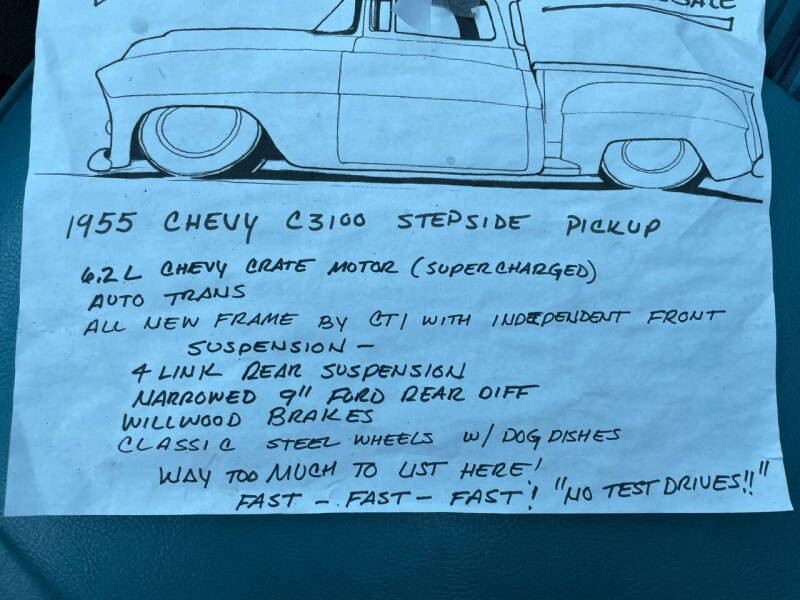 SALE
1955 CHEVY C3100 STEPSIDE PICKUP
6.2 L CHEVY CRATE MOTOR (SUPERCHARGED)
AUTO TRANS
ALL NEW FRAME BY CTI WITH INDEPENDENT FRONT
SUSPENSION -
4 LINK REAR SUSPENSION
NARROWED 9" FORD REAR DIFF
WILLWOOD BRAKES
CLASSIC STEEL WHEELS W/ DOG DISHES
WAY TOO MUCH TO LIST HERE!
FAST - FAST - FAST! "NO TEST DRIVES!!"